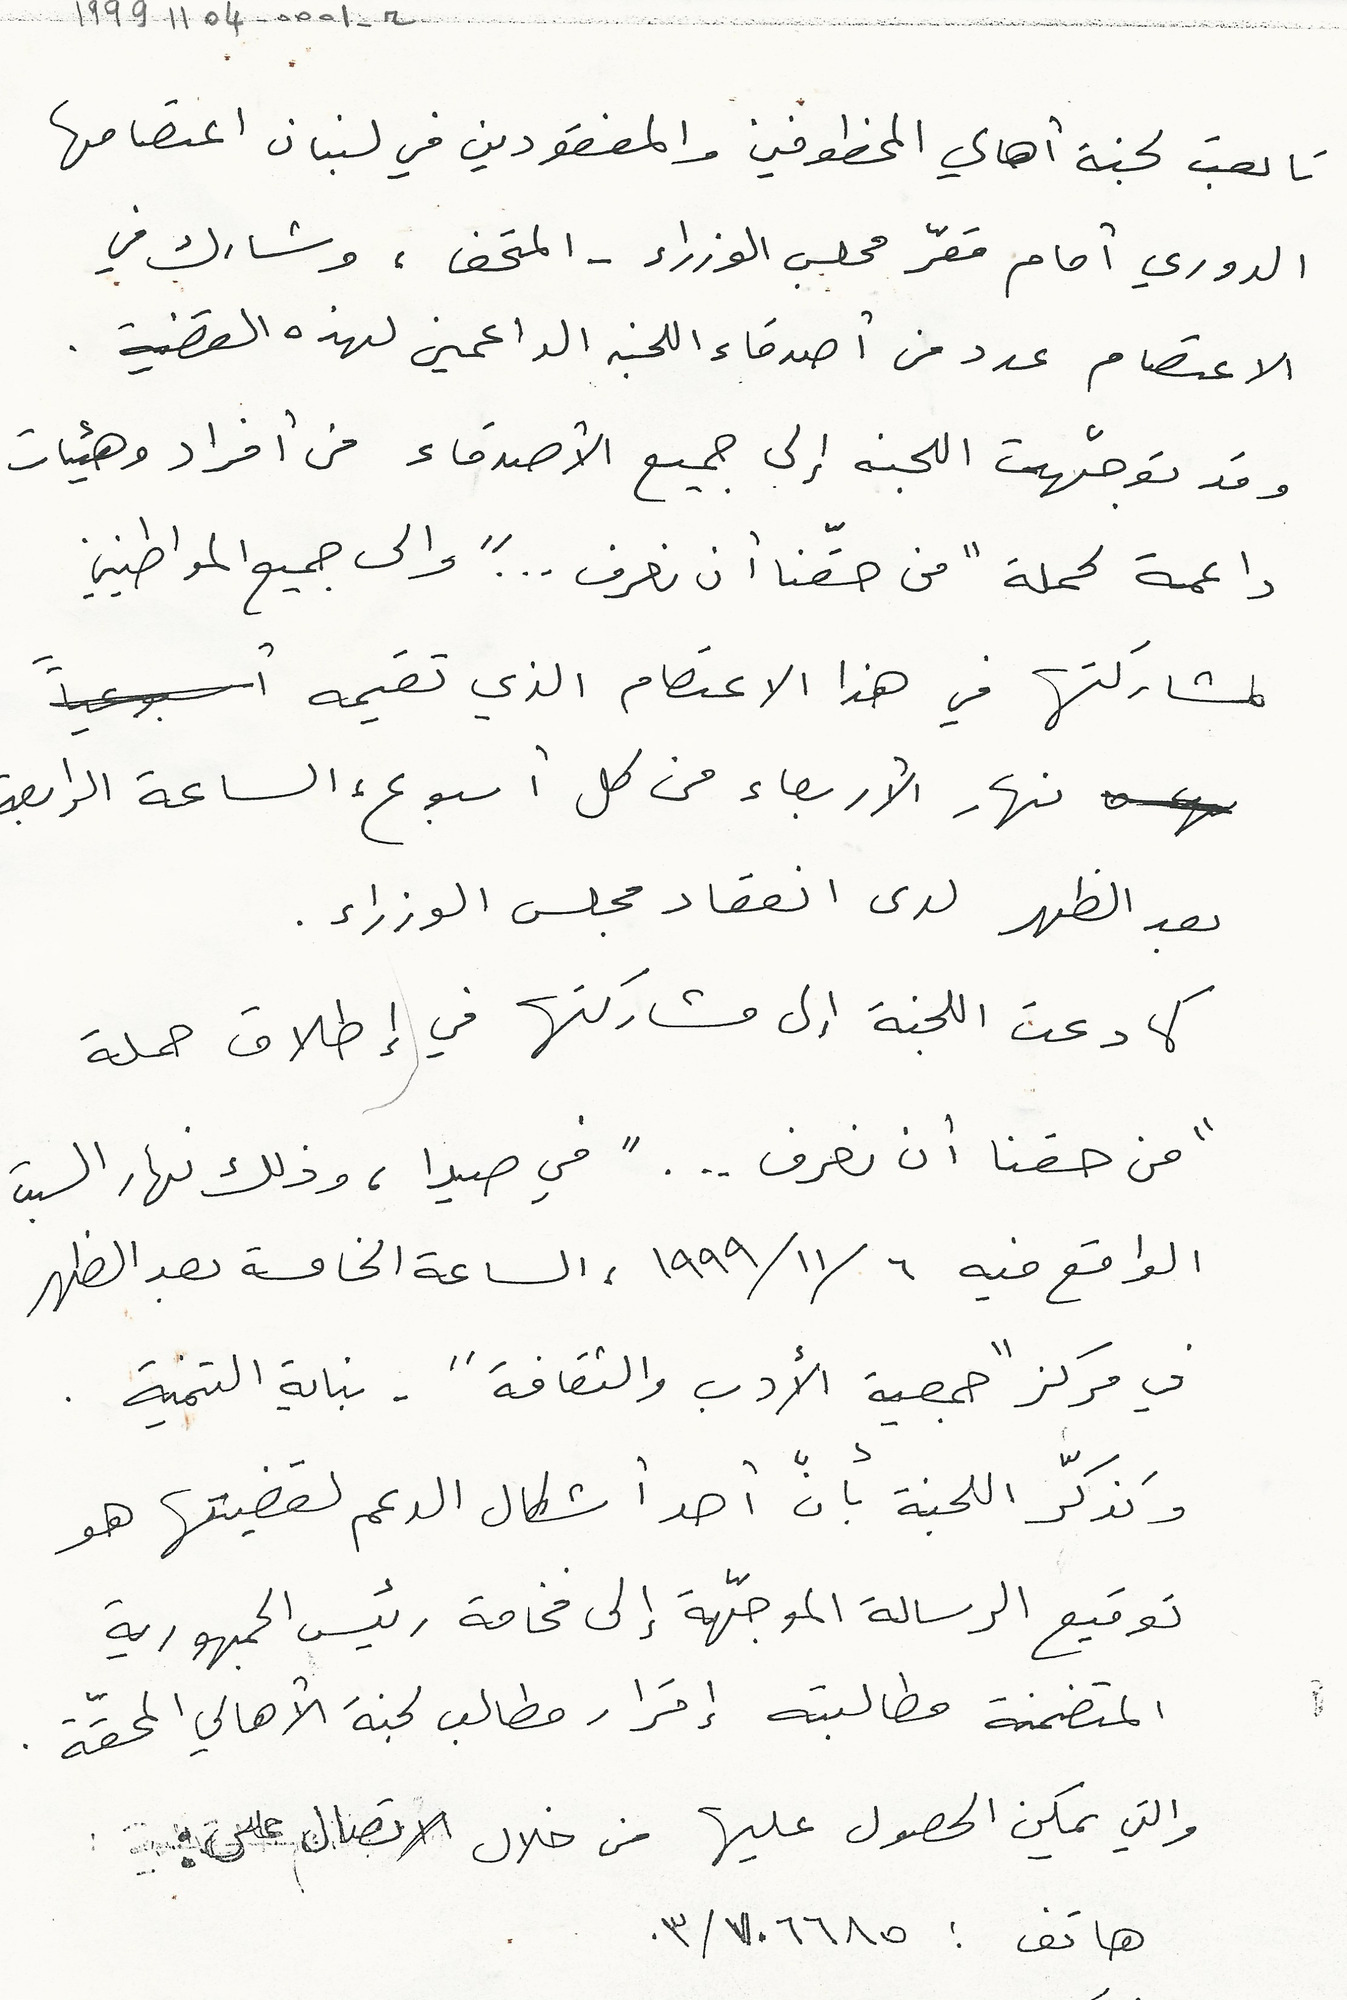 1999 11 04_0001_r
تابعت لجنة أهالي المخطوفين والمفقودين في لبنان اعتصامها
الدوري أمام مقرّ مجلس الوزراء - المتحف ، وشارك في
الاعتصام عدد من أصدقاء اللجنه الداعمين لهذه القضية .
وقد توجّهت اللجنه إلى جميع الأصدقاء من أفراد وهيئات
داعمة لحملة "من حقّنا أن نعرف ..." والى جميع المواطنين
لمشاركتها في هذا الاعتصام الذي تقيمه أسبوعياً
نهار الأربعاء من كل أسبوع ، الساعة الرابعة
بعد الظهر لدى انعقاد مجلس الوزراء .
كما دعت اللجنة إلى مشاركتها في إطلاق حملة
"من حقنا أن نعرف ...." في صيدا ، وذلك نهار السبت
الواقع فيه ٦/١١/١٩٩٩ ، الساعة الخامسة بعد الظهر
في مركز "جمعية الأدب والثقافة" - بناية التنمية .
وتذكّر اللجنة بأنّ أحد أشكال الدعم لقضيتها هو
توقيع الرسالة الموجّهة إلى فخامة رئيس الجمهورية
المتضمنة مطالبته إقرار مطالب لجنة الأهالي المحقّة .
والتي يمكن الحصول عليها من خلال الاتصال على :
هاتف : ٠٣/٧٠٦٦٨٥